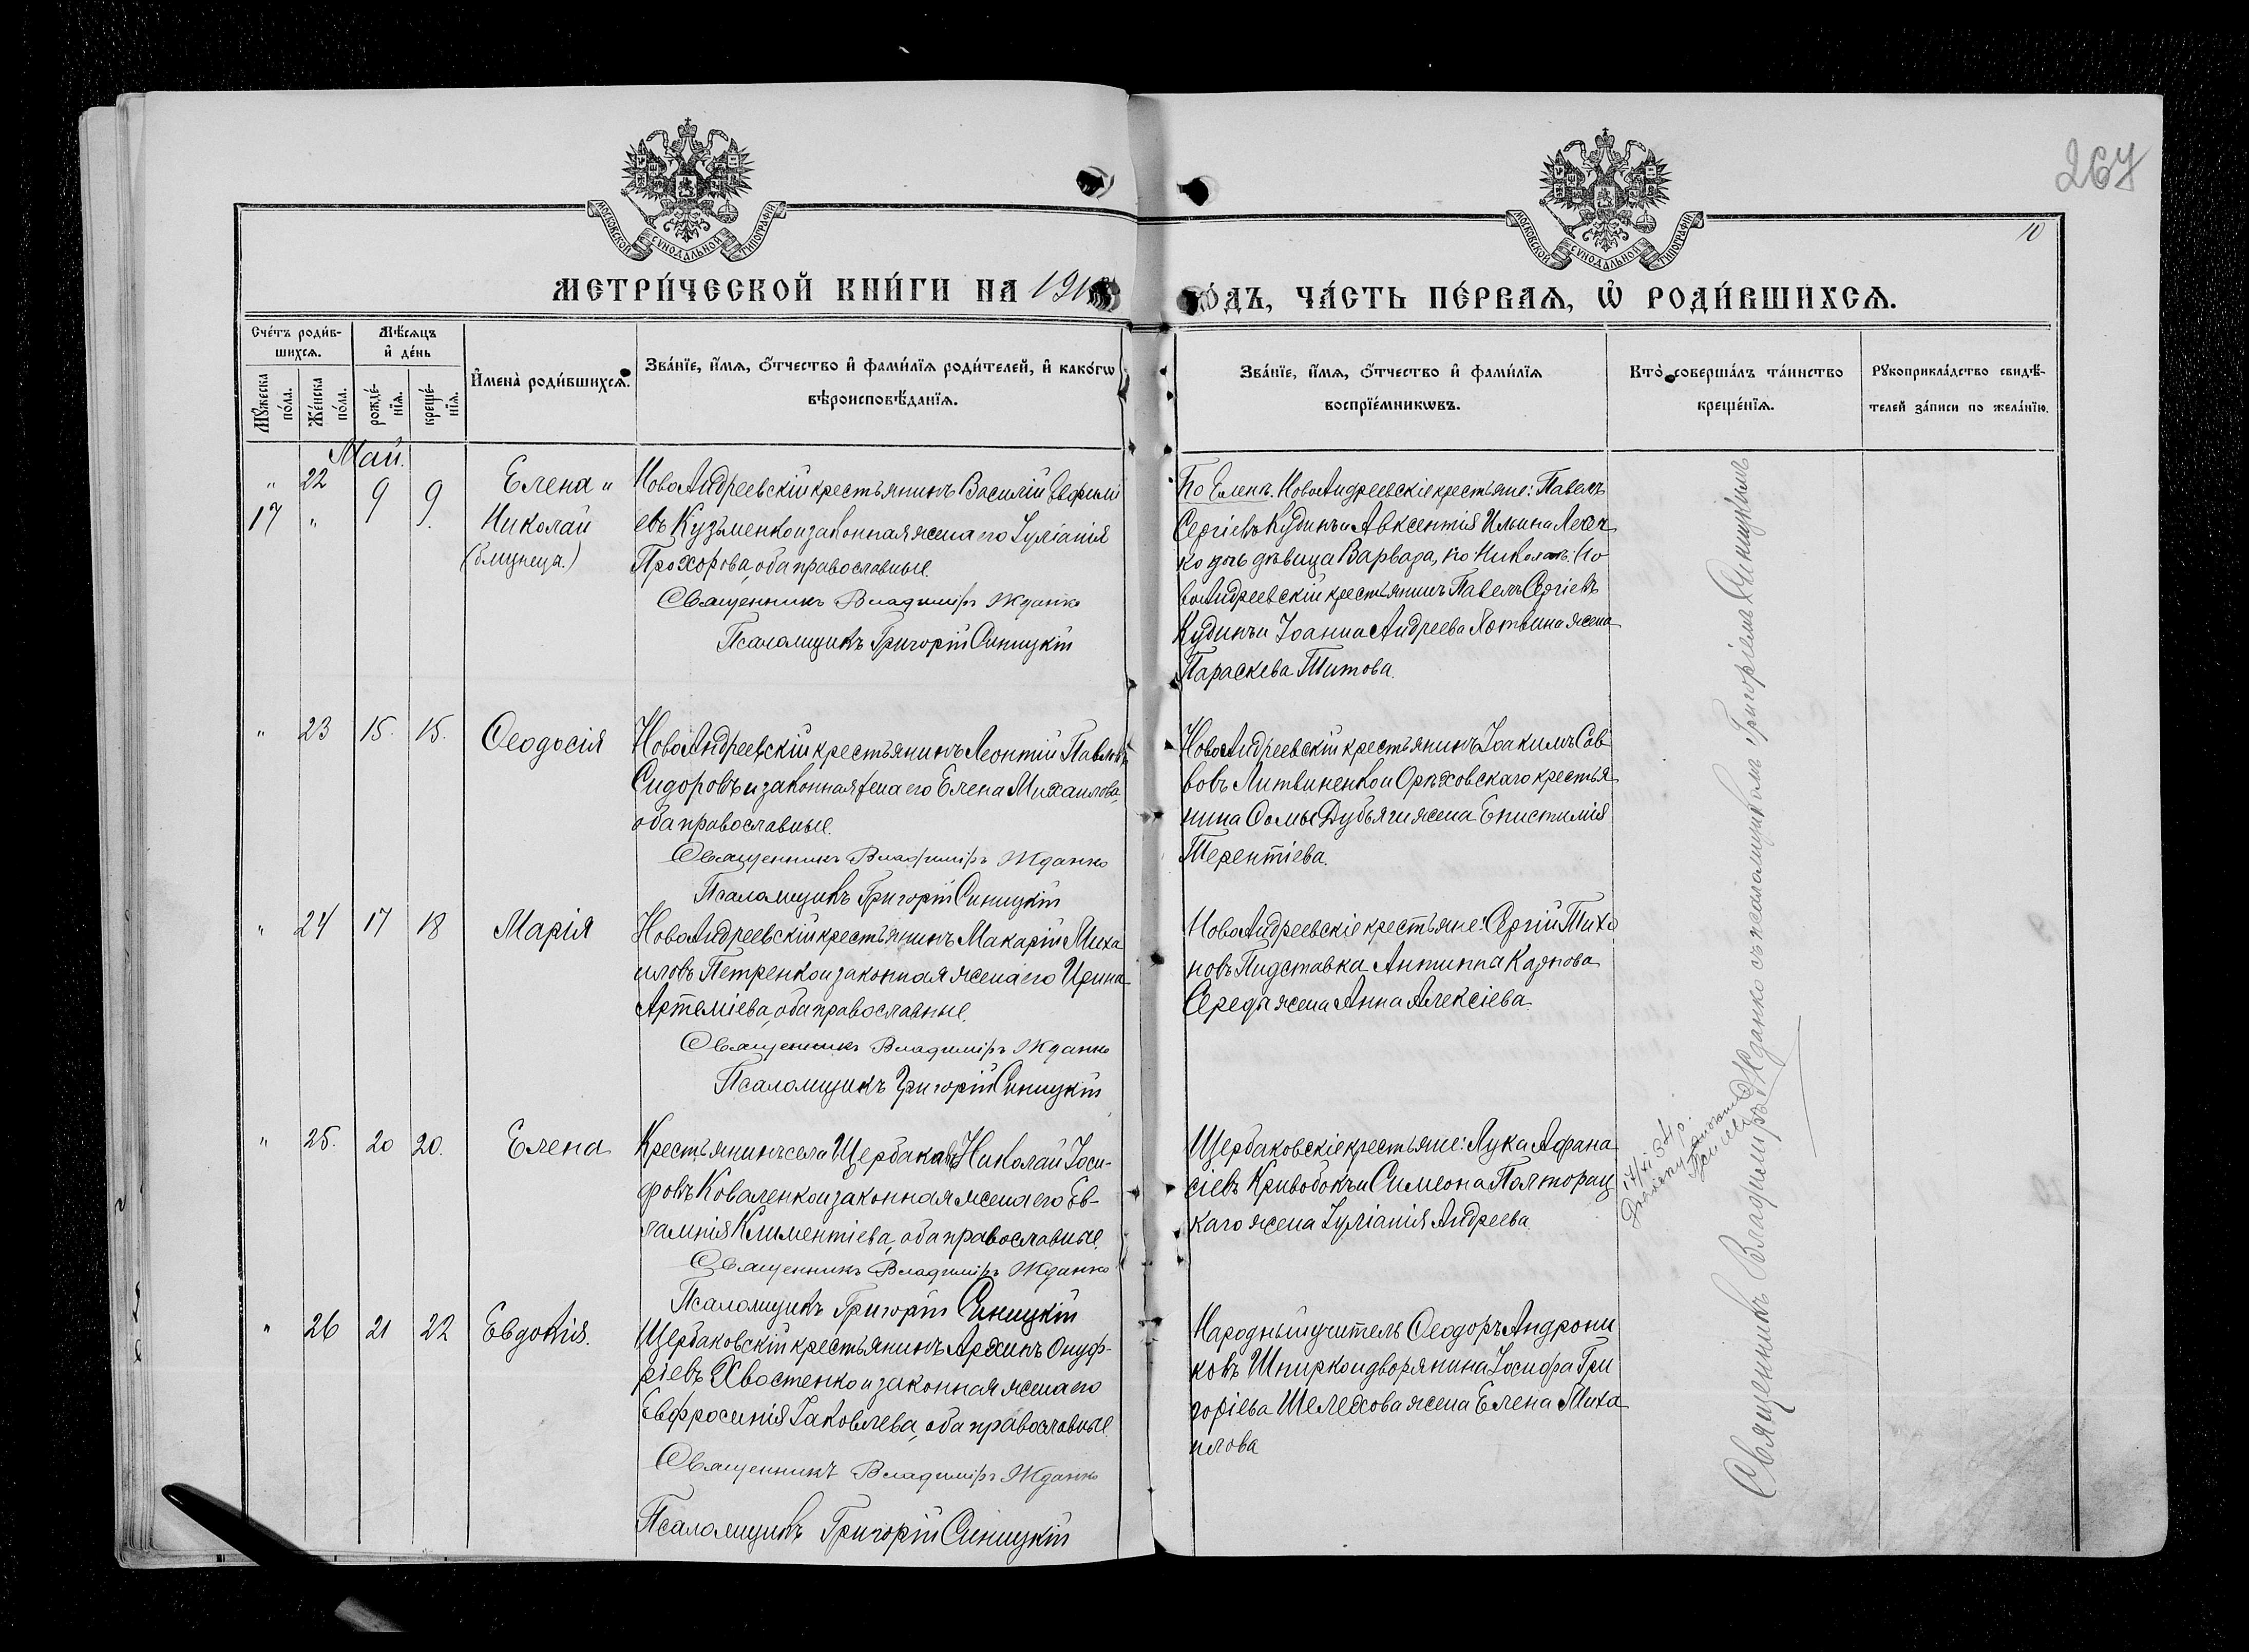 267
10
МОСКОВСКОЙ СѴНОДАЛЬНОЙ ТИПОГРАФІИ
МОСКОВСКОЙ СѴНОДАЛЬНОЙ ТИПОГРАФІИ
МЕТРИ́ЧЕСКОЙ КНИ́ГИ НА 191
ГО́ДЪ, ЧА́СТЬ ПЕ́РВАѦ, Ѡ РОДИ́ВШИХСѦ.
Сче́тъ роди́в-
шихсѧ.
Мѣ́сѧцъ
и де́нь
Мꙋ́жеска
по́ла.
Же́нска
по́ла.
рожде́-
нїѧ.
креще́-
нїѧ.
И҆мена̀ роди́вшихсѧ.
Зва́нїе, и҆́мѧ, о҆́тчество и҆ фами́лїѧ роди́телей, и҆ како́гѡ
вѣроисповѣ́данїѧ.
Зва́нїе, и҆́мѧ, о҆́тчество и҆ фами́лїѧ
воспрїе́мникѡвъ.
Кто̀ соверша́лъ та́инство
креще́нїѧ.
Рꙋкоприкла́дство свидѣ́-
телей за́писи по жела́нїю.
Май.
" 22 9 9 Елена "
17 " 9 9. Николай
(близнеца.)
НовоАндреевскій крестьянинъ Василій Евфимі
евъ Кузьменко и законная жена его Іуліанія
Прохорова, оба православные.
Священникъ Владиміръ Жданко
Псаломщикъ Григорій Синицкій
По Еленѣ. НовоАндреевскіе крестьяне: Павелъ
Сергіевъ Кудинъ и Авксентія Ильина
ко дочь дѣвица Варвара, по Николаѣ: Но
воАндреевскій крестьянинъ Павелъ Сергіевъ
Кудинъ и Іоанна Андреева жена
Параскева Титова.
" 23 15. 15. Ѳеодосія
НовоАндреевскій крестьянинъ Леонтій Павловъ
Сидоровъ и законная жена его Елена Михаилова,
оба православные.
Священникъ Владиміръ Жданко
Псаломщикъ Григорій Синицкій
НовоАндреевскій крестьянинъ Іоакимъ Сав
вовъ Литвиненко и Орѣховскаго крестья
нина Ѳомы Дубяги жена Епистимія
Терентіева.
" 24 17 18 Марія
НовоАндреевскій крестьянинъ Макарій Миха
иловъ Петренко и законная жена его Ирина
Артеміева, оба православные.
Священникъ Владиміръ Жданко
Псаломщикъ Григорій Синицкій
НовоАндреевскіе крестьяне: Сергій Тихо
новъ Пидставка Антиппа Карпова
Середы жена Анна Алексіева.
" 25. 20 20. Елена
Крестьянинъ села Щербаковъ Николай Іоси-
фовъ Коваленко и законная жена его Ев-
лампія Климентіева, оба православные.
Священникъ Владиміръ Жданко
Псаломщикъ Григорій Синицкій
Щербаковскіе крестьяне: Лука Афана
сіевъ Кривобокъ и Симеона Полторац
каго жена Іуліанія Андреева.
" 26 21 22 Евдокія.
Щербаковскій крестьянинъ Архипъ Онуф-
ріевъ Хвостенко и законная жена его
Евфросинія Іаковлева, оба православные
Священникъ Владиміръ Жданко
Псаломщикъ Григорій Синицкій
Народный учитель Ѳеодоръ Андрони
ковъ Шпирко и дворянина Іосифа Гри
горіева Шелехова жена Елена Миха
илова
Священникъ Владиміръ Жданко съ псаломщикомъ Григоріемъ Синицкимъ